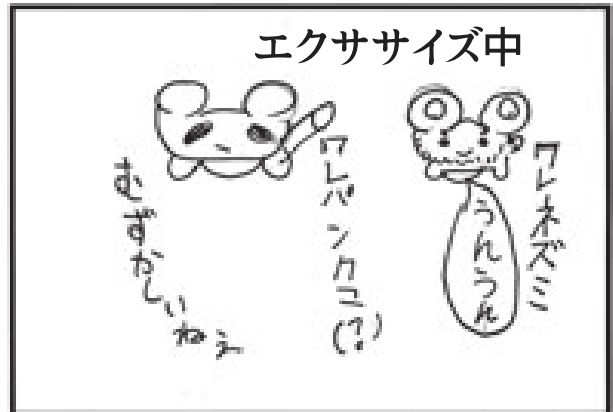 エクササイズ中
ワレネズミ
うんうん
ワレパンクコ(?)
むずかしいねぇ